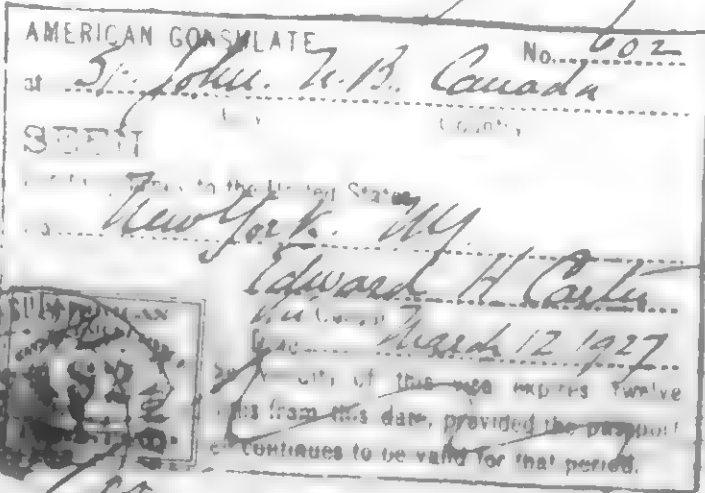 AMERICAN CONSULATE No. 602
at St. John. N.B. Canada
Country
SEEN
to the United States
New York. NY
Edward H Carter
March 12 1927
of this visa expires twelve
from this date, provided the passport
continues to be valid for that period.